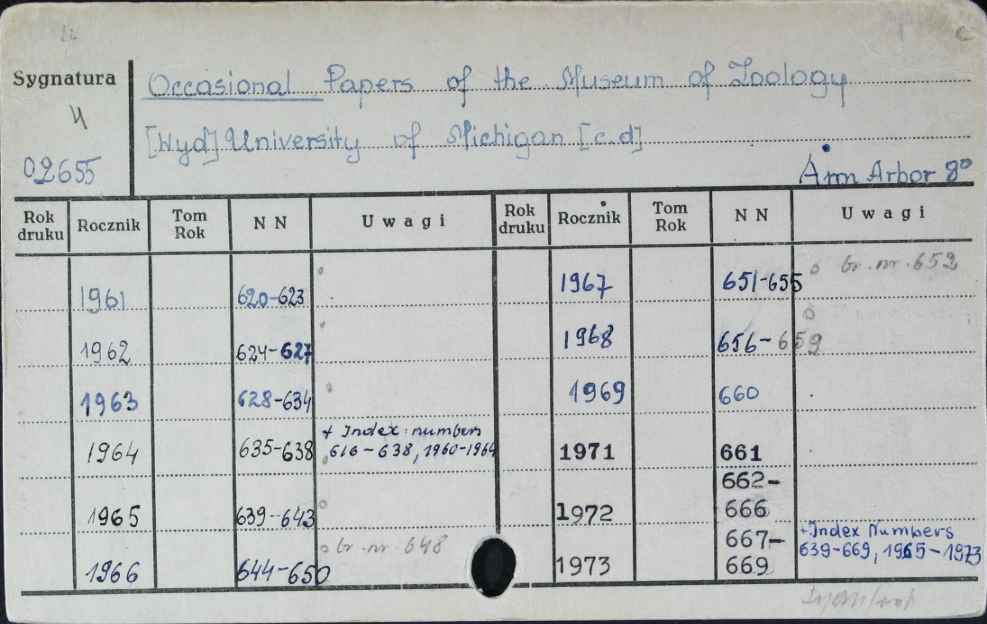 Sygnatura
4
02655
Occasional Papers of the Museum of Zoology
[Wyd] University of Michigan [c.d]
Ann Arbor 8°
Rok druku Rocznik Tom Rok NN Uwagi Rok druku Rocznik Tom Rok NN Uwagi
1961 620-623 1967 651-655 br. nr. 652
1962 624-627 1968 656-659
1963 628-634 1969 660
1964 635-638 + Index: numbers 616-638, 1960-1964 1971 661
1965 639-643 1972 662-666
1966 644-650 br. nr. 648 1973 667-669 + Index Numbers 639-669, 1965-1973